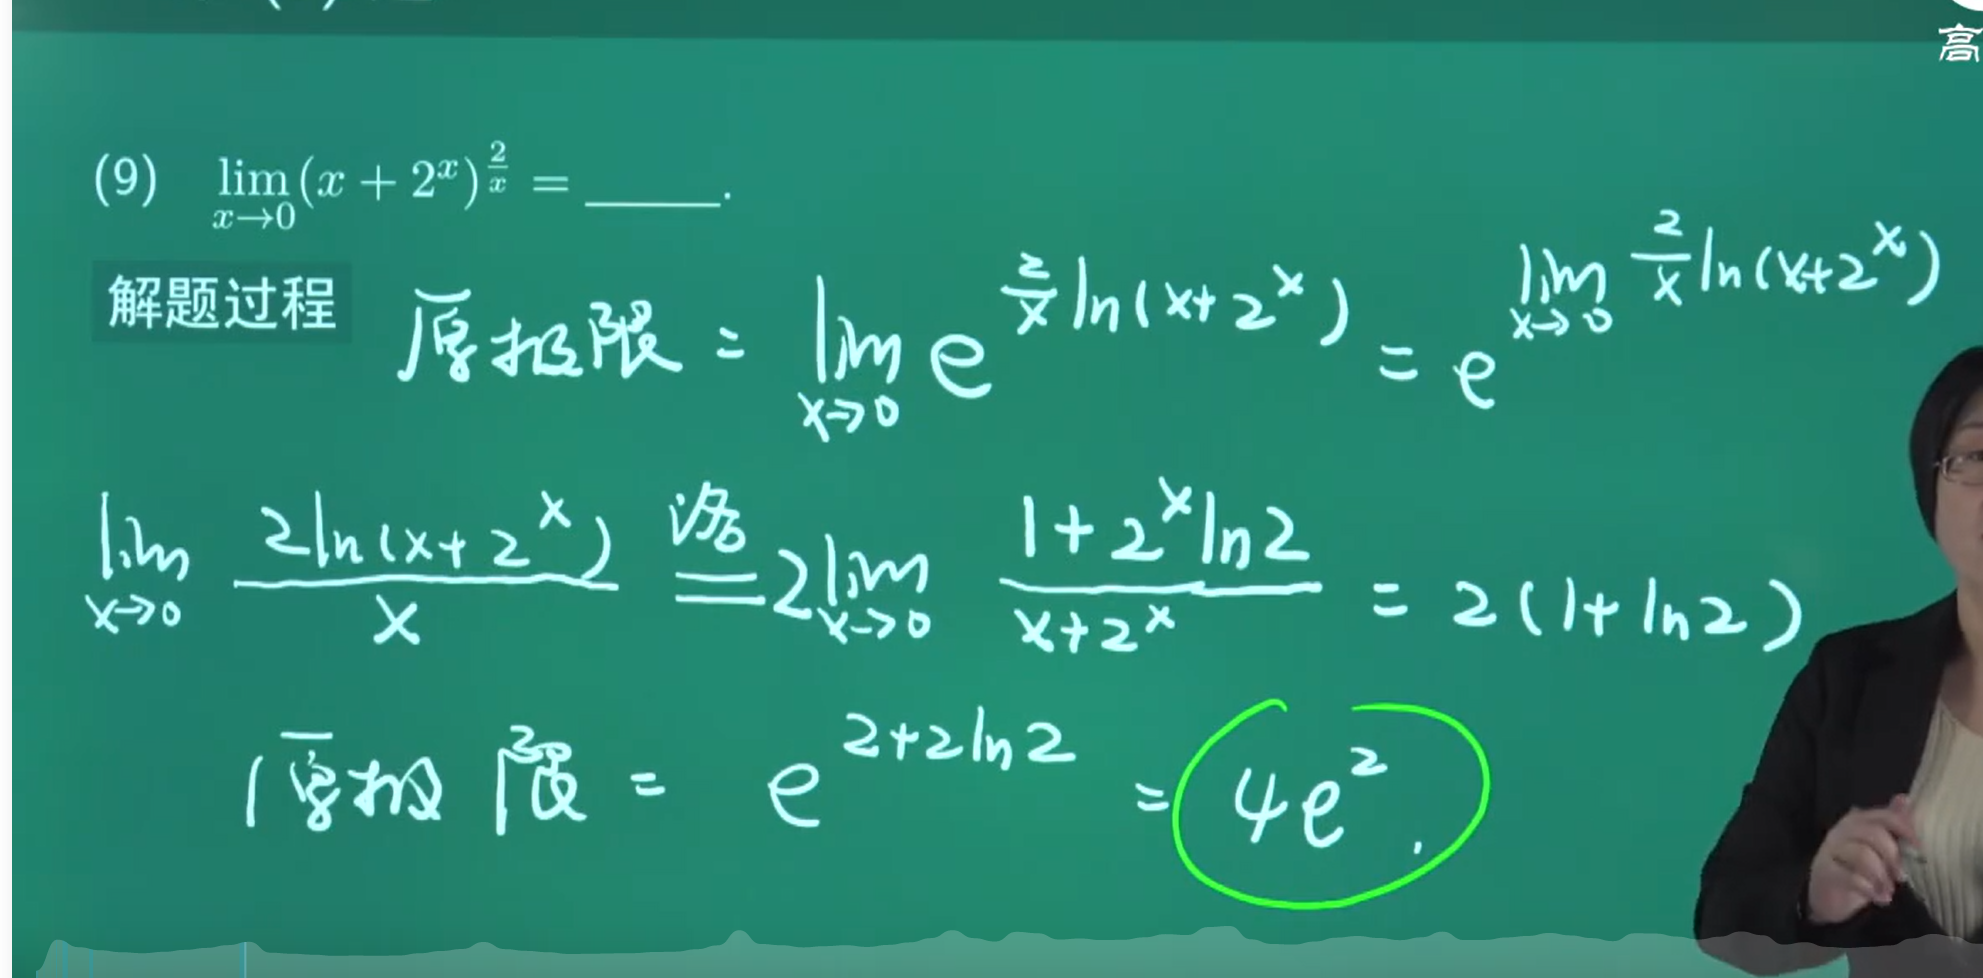 高
(9) lim_{x→0} (x + 2^x)^{2/x} = ____.
解题过程 原极限 = lim_{x→0} e^{2/x ln(x+2^x)} = e^{lim_{x→0} 2/x ln(x+2^x)}
lim_{x→0} 2ln(x+2^x)/x 洛= 2lim_{x→0} (1+2^x ln2)/(x+2^x) = 2(1+ln2)
原极限 = e^{2+2ln2} = 4e^2.